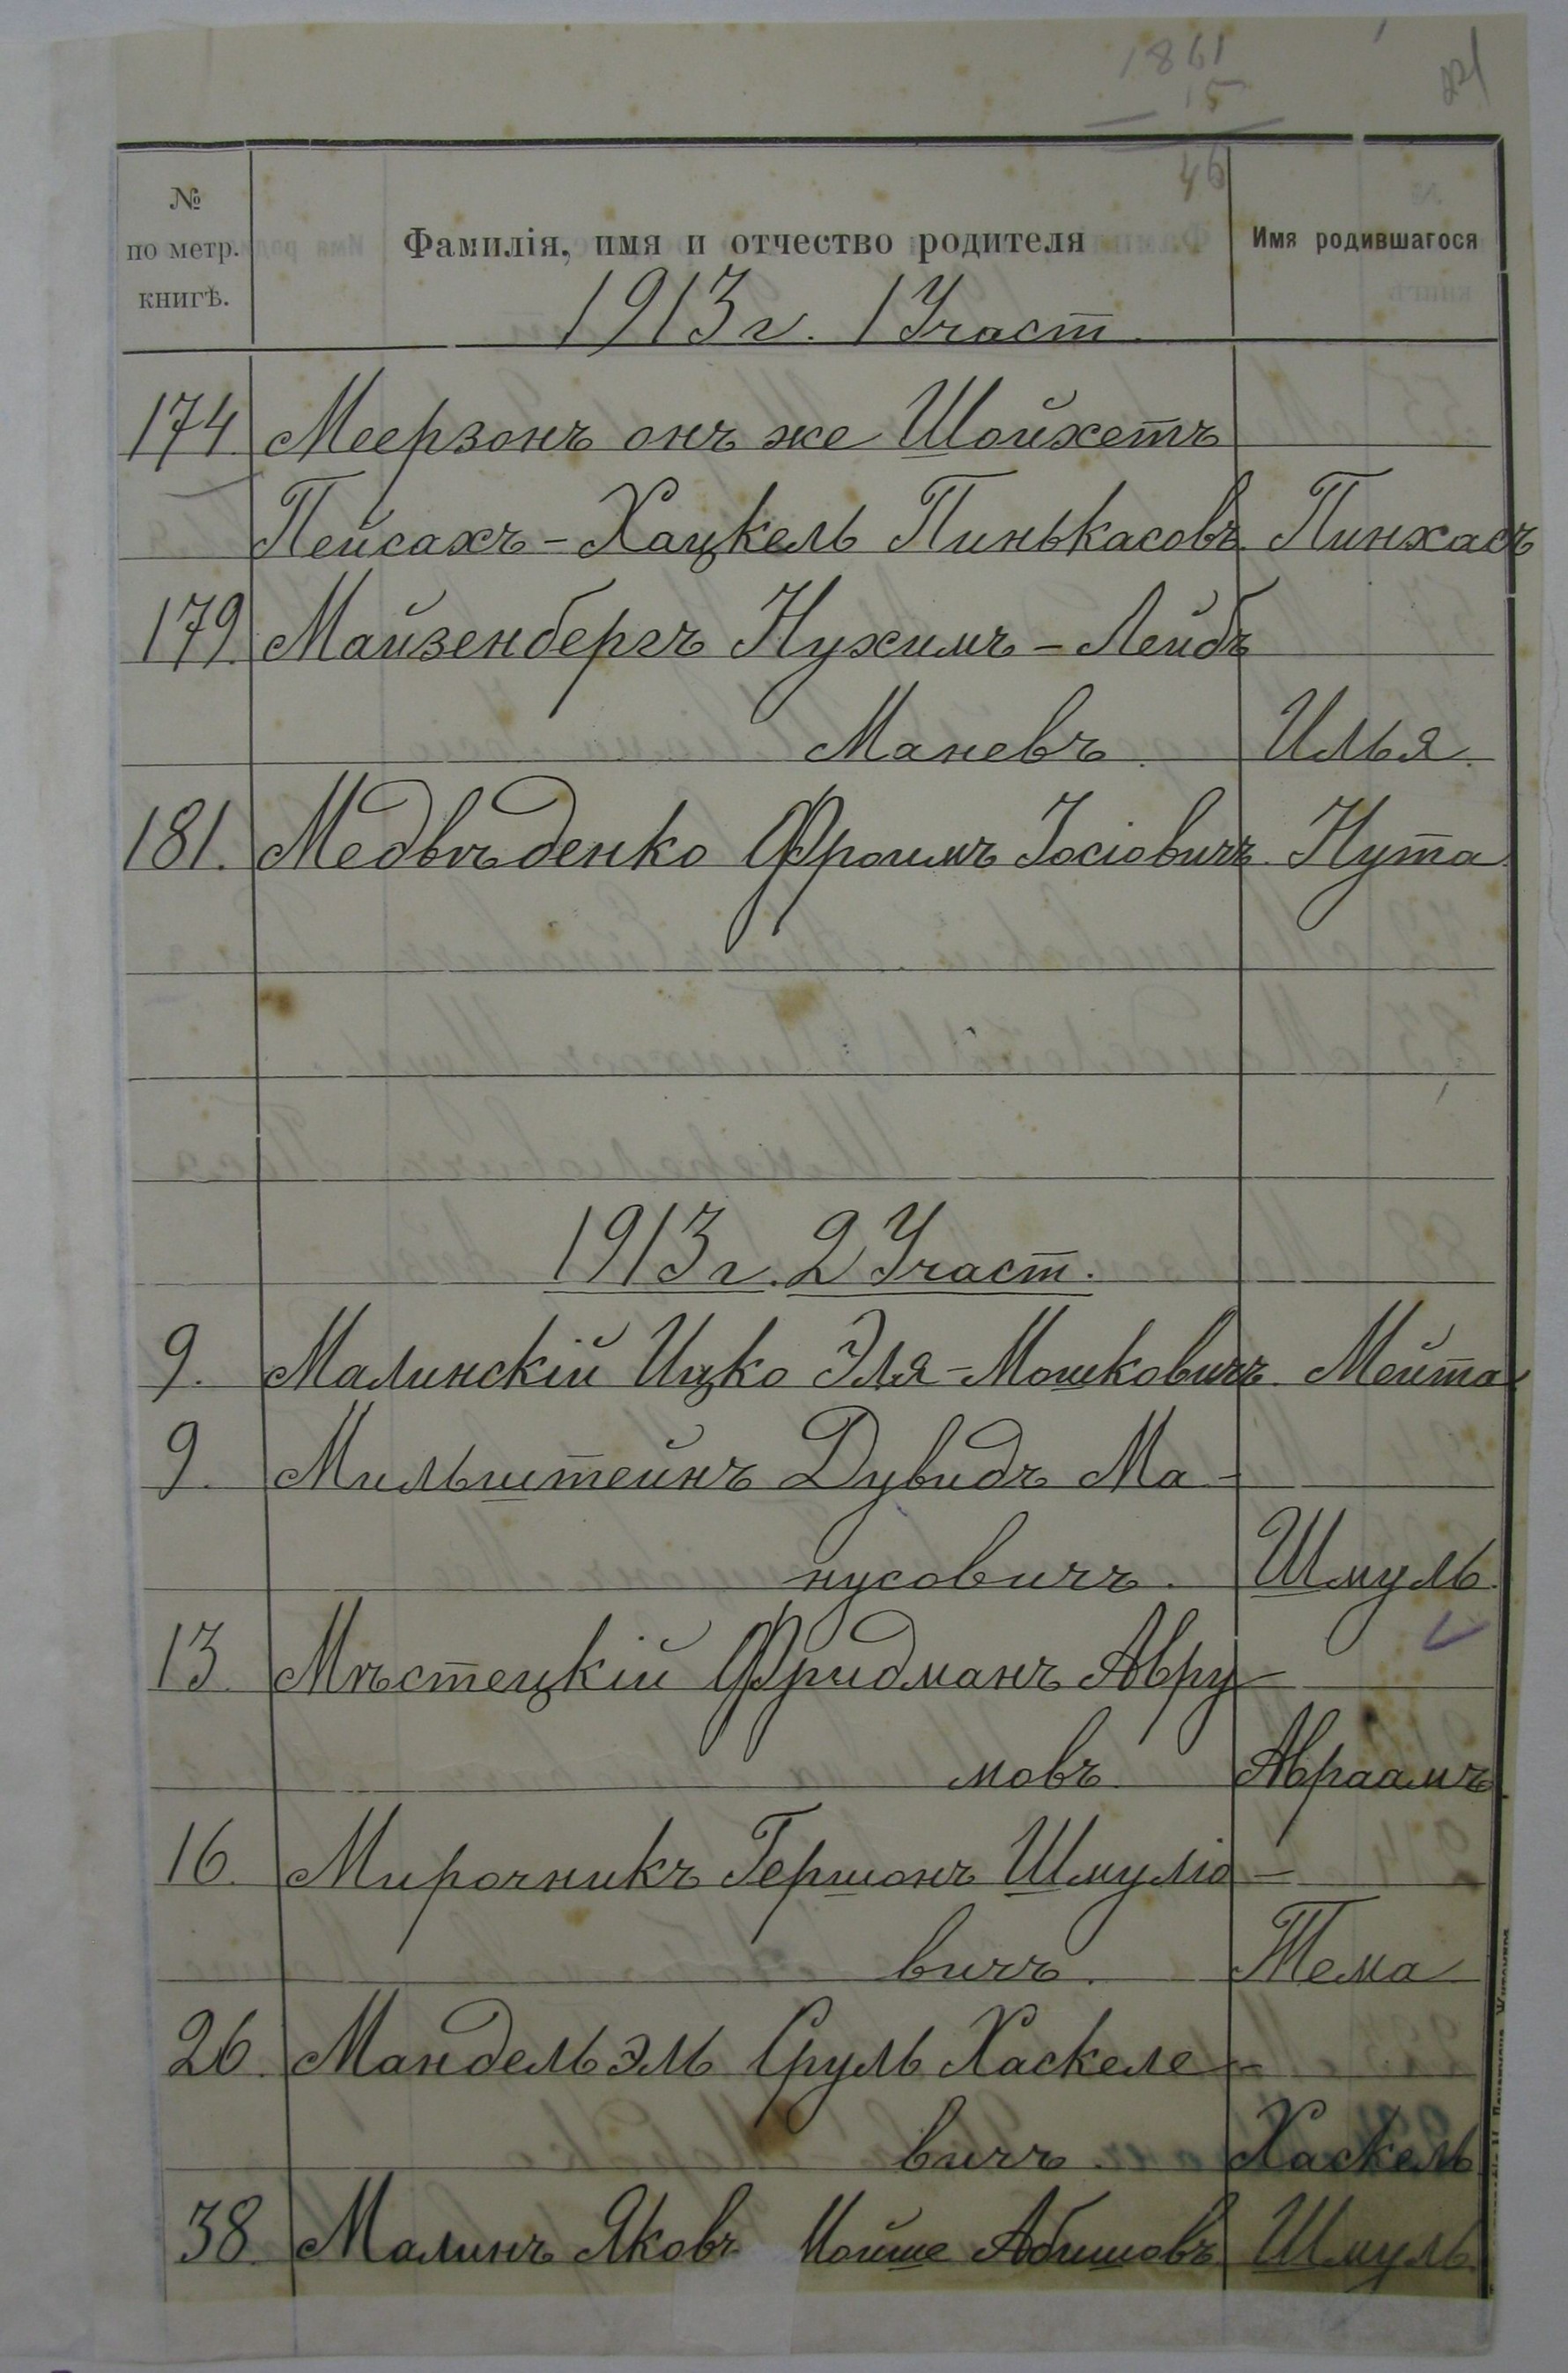 1861
15
46
№ по метр. книгѣ.
Фамилія, имя и отчество родителя
Имя родившагося
1913 г. 1 Участ.
174 Меерзонъ онъ же Шойхетъ
Пейсахъ-Хацкель Пинькасовъ. Пинхасъ
179. Майзенбергъ Нухимъ-Лейбъ
Маневъ. Илья.
181. Медвѣденко Фроимъ Іосіовичъ. Нута.
1913 г. 2 Участ.
9. Малинскій Ицко Эля-Мошковичъ. Мейта.
9. Мильштейнъ Дувидъ Ма-
нусовичъ. Шмуль.
13. Мѣстецкій Фридманъ Авру-
мовъ. Авраамъ
16. Мирочникъ Гершонъ Шмуліо-
вичъ. Тема
26. Мандельэль Сруль Хаскеле-
вичъ. Хаскель
38. Малинъ Яковъ Мойше Абишовъ. Шмуль.